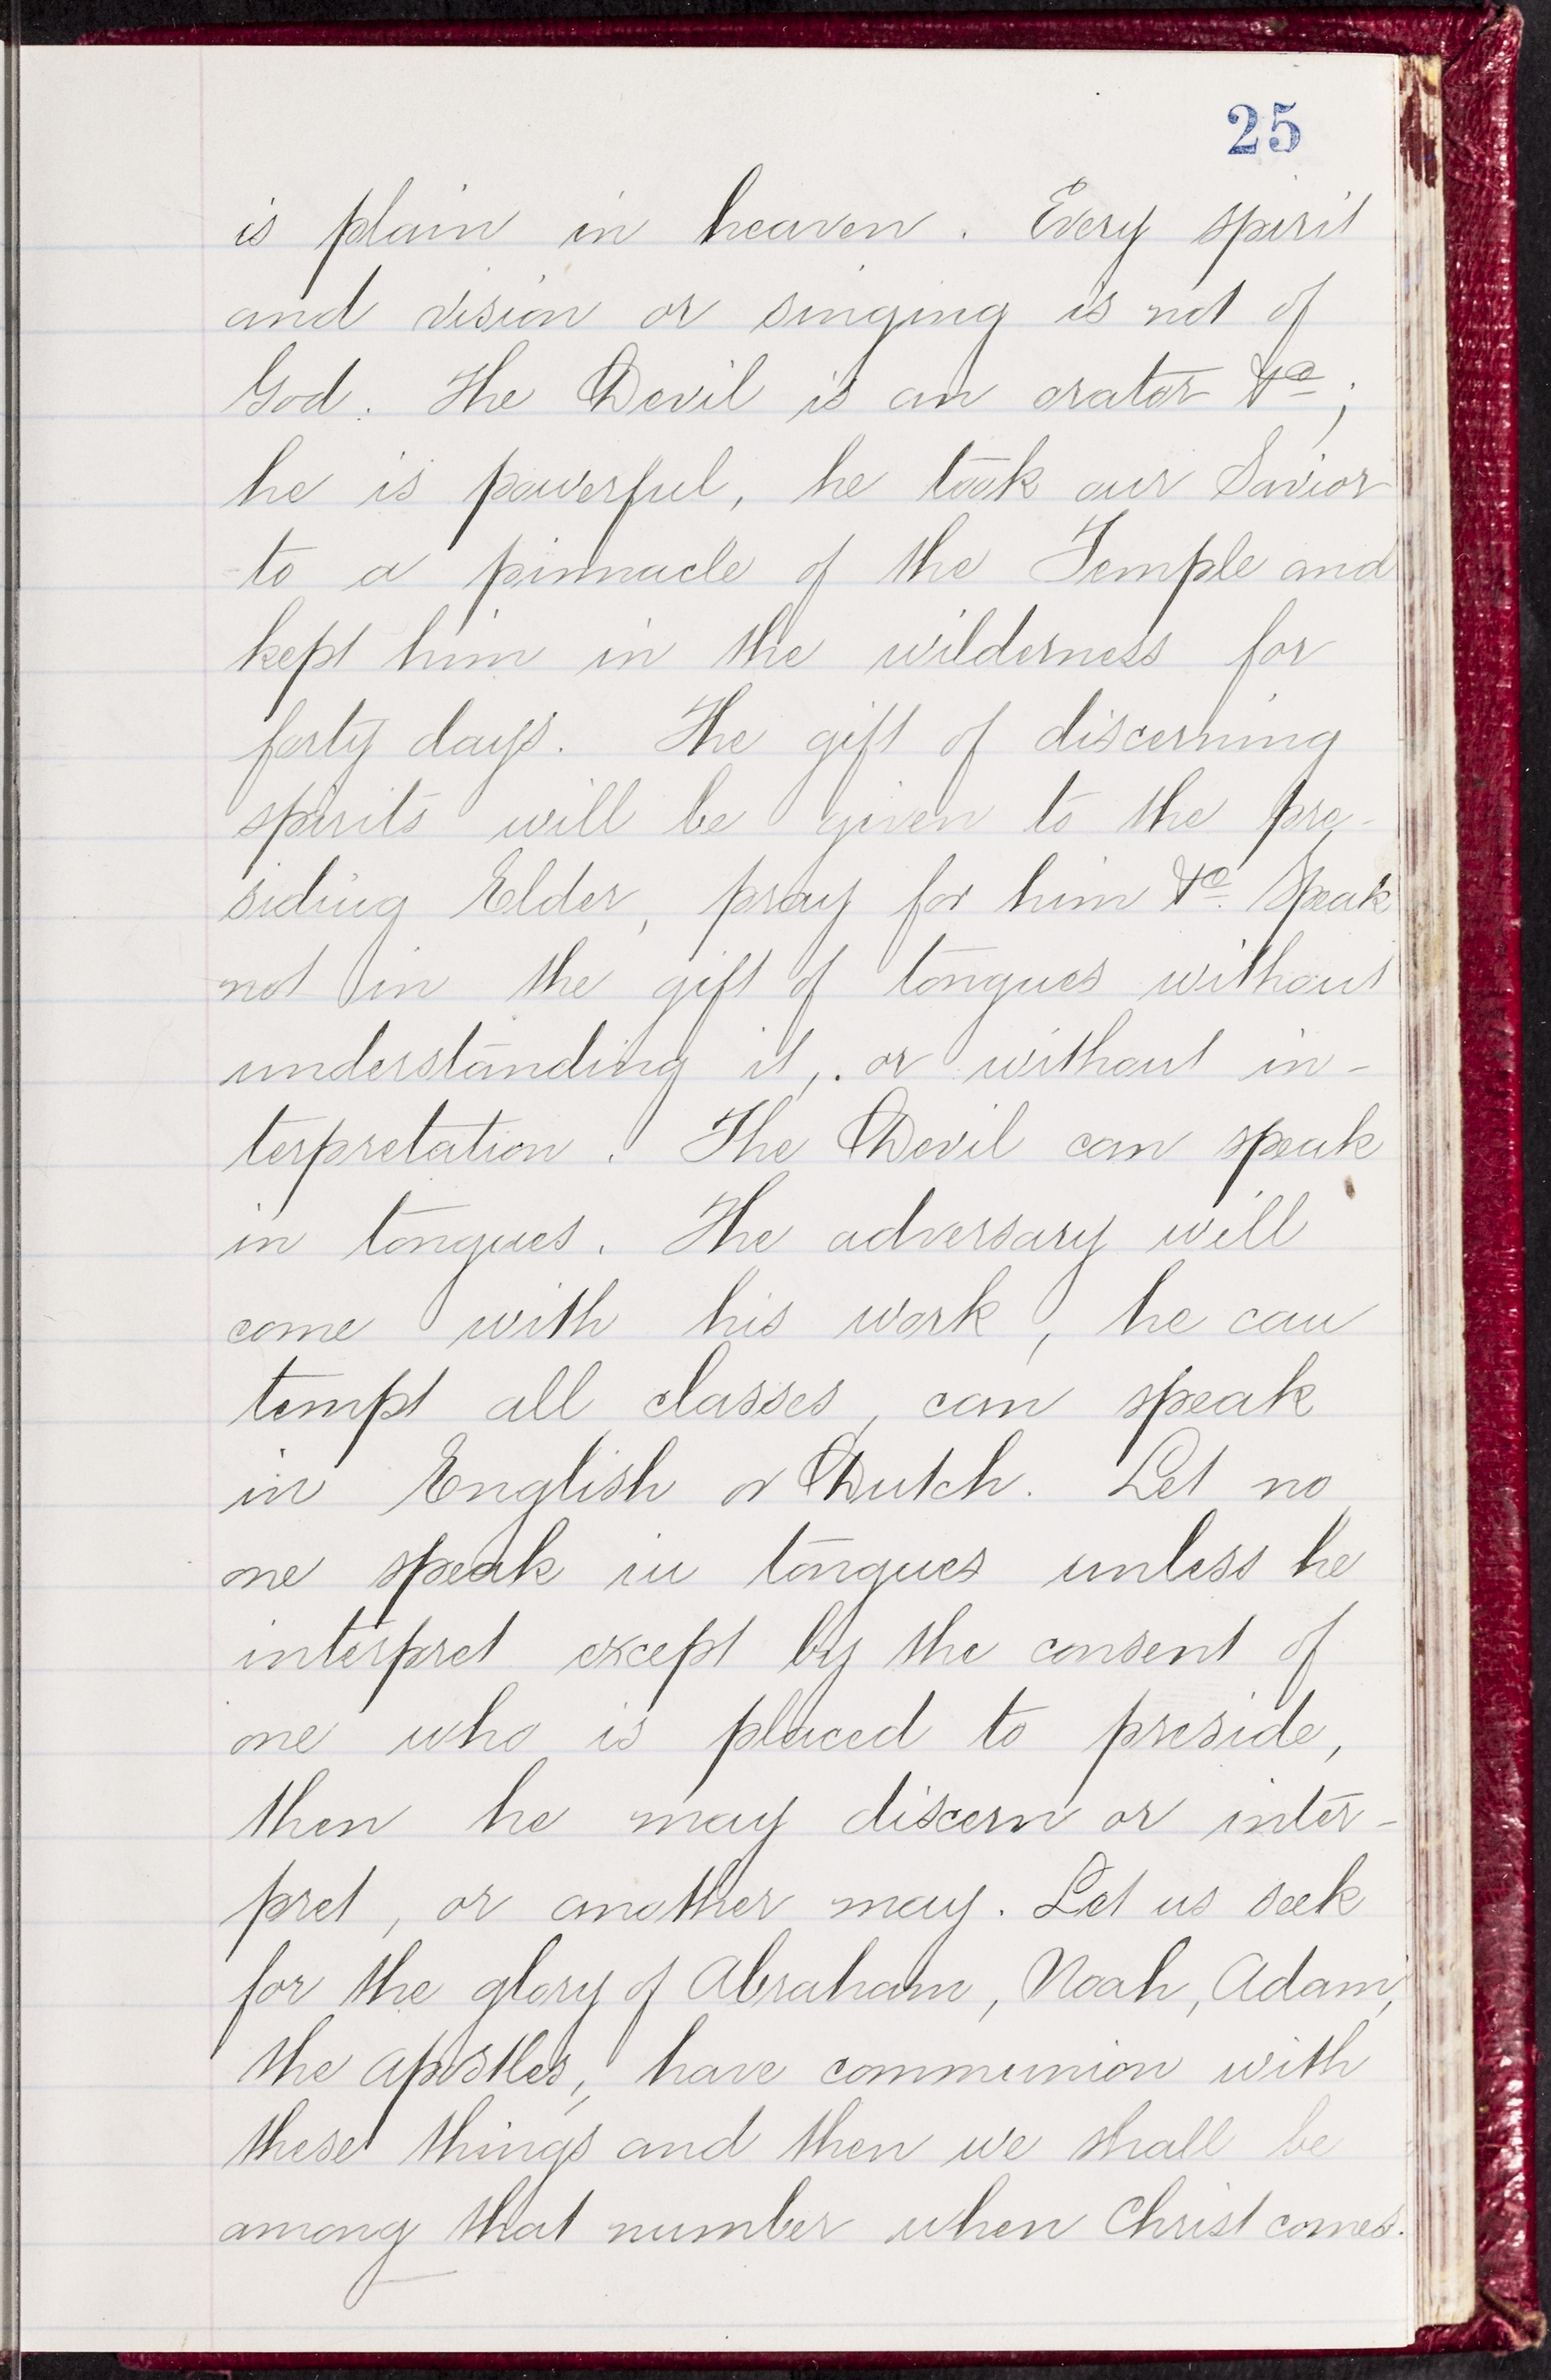 25
is plain in heaven. Every spirit
and vision or singing is not of
God. The Devil is an orator &c;
he is powerful, he took our Savior
to a pinnacle of the Temple and
kept him in the wilderness for
forty days. The gift of discerning
spirits will be given to the pre-
siding Elder, pray for him &c. Speak
not in the gift of tongues without
understanding it, or without in-
terpretation. The Devil can speak
in tongues. The adversary will
come with his work, he can
tempt all classes, can speak
in English or Dutch. Let no
one speak in tongues unless he
interpret except by the consent of
one who is placed to preside,
then he may discern or inter-
pret, or another may. Let us seek
for the glory of Abraham, Noah, Adam,
the apostles, have communion with
these things and then we shall be
among that number when Christ comes.